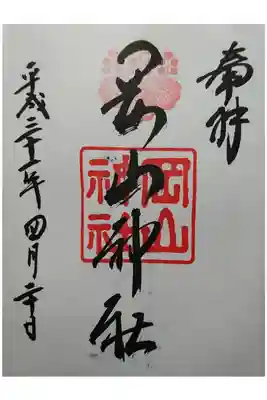 奉拝
岡山神社
岡山
神社
平成二十二年四月二十日